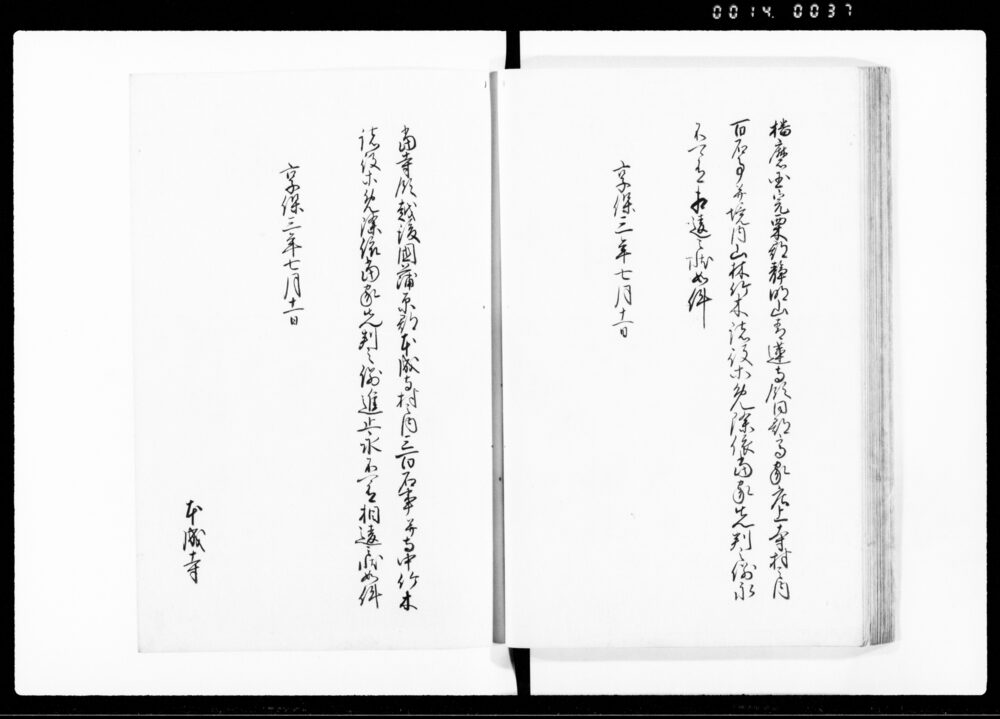 0014 0037
播磨国宍粟郡静明山青蓮寺領同郡高家庄上寺村之内
百石事并境内山林竹木諸役等免除依当家先判之例永
不可有相違之状如件
享保三年七月十一日
当寺領越後国蒲原郡本成寺村之内三百石事并寺中竹木
諸役等免除依当家先判之例進止永不可有相違之状如件
享保三年七月十一日
本成寺